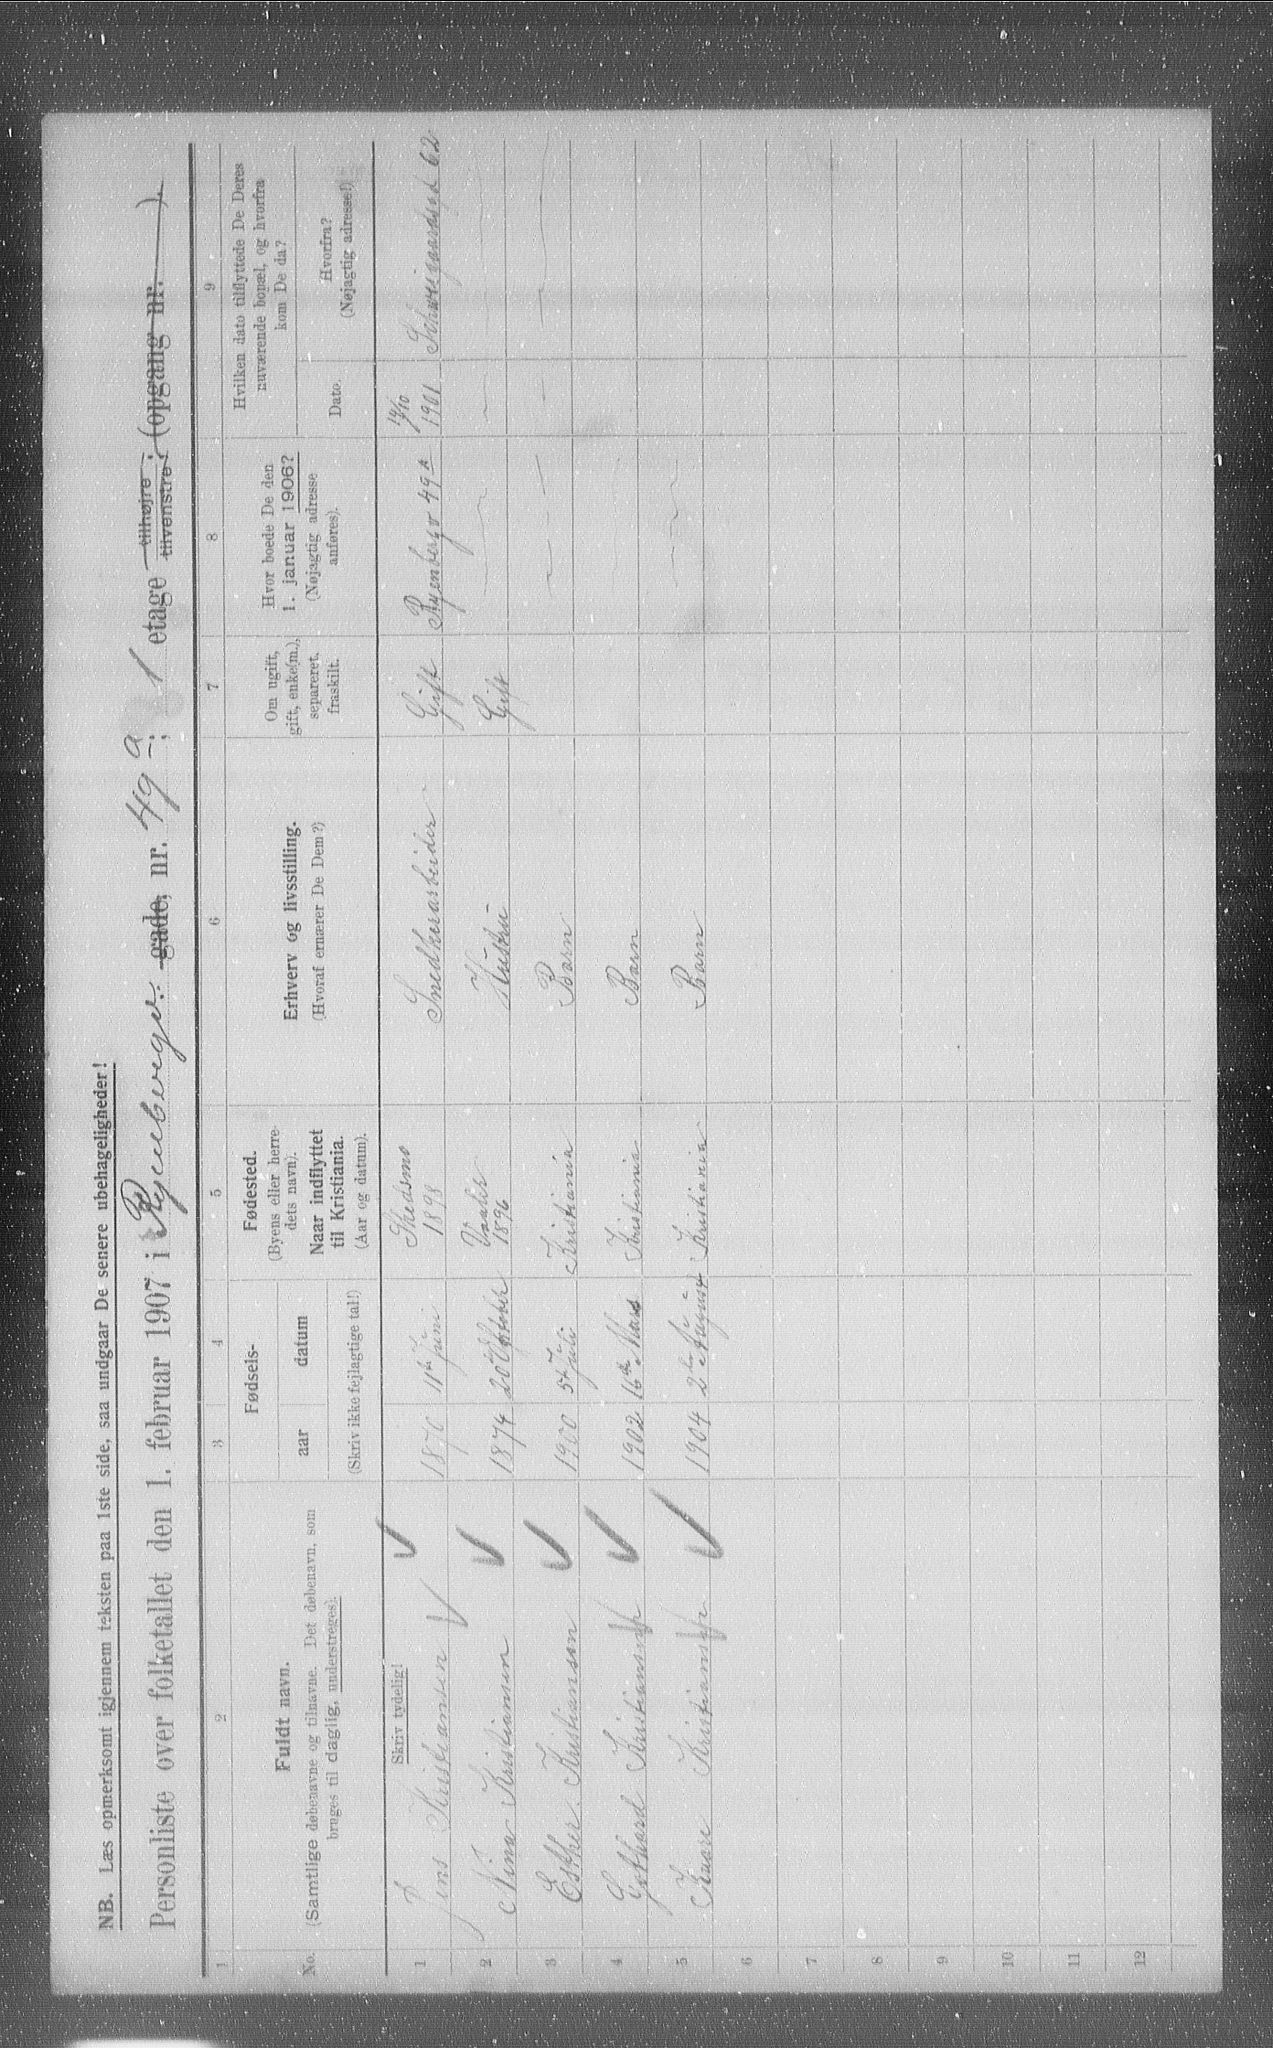 NB. Læs opmerksomt igjennem teksten paa 1ste side, saa undgaar De senere ubehageligheder!
Personliste over folketallet den 1. februar 1907 i Ryenbergv. gade, nr. 49 a; 1 etage tilhøjre tilvenstre; (opgang nr. ).
1 2 3 4 5 6 7 8 9
No.
Fuldt navn.
(Samtlige døbenavne og tilnavne. Det døbenavn, som
bruges til daglig, understreges).
Fødsels-
aar datum
(Skriv ikke fejlagtige tal!)
Fødested.
(Byens eller herre-
dets navn).
Naar indflyttet
til Kristiania.
(Aar og datum).
Erhverv og livsstilling.
(Hvoraf ernærer De Dem?)
Om ugift,
gift, enke(m.),
separeret,
fraskilt.
Hvor boede De den
1. januar 1906?
(Nøjagtig adresse
anføres).
Hvilken dato tilflyttede De Deres
nuværende bopæl, og hvorfra
kom De da?
Dato.
Hvorfra?
(Nøjagtig adresse!)
Skriv tydelig!
1 Jens Kristiansen 1870 11te Juni Skedsmo 1898 Snedkerarbeider Gift Ryenbergv 49 a 14/10 1901 Schweigaardsgd 62
2 Nina Kristiansen 1874 20de Vaaler 1896 Hustru Gift
3 Esther Kristiansen 1900 5te Juli Kristiania Barn
4 Gothard Kristiansen 1902 16de Mars Kristiania Barn
5 Kaare Kristiansen 1904 2den August Kristiania Barn
6
7
8
9
10
11
12